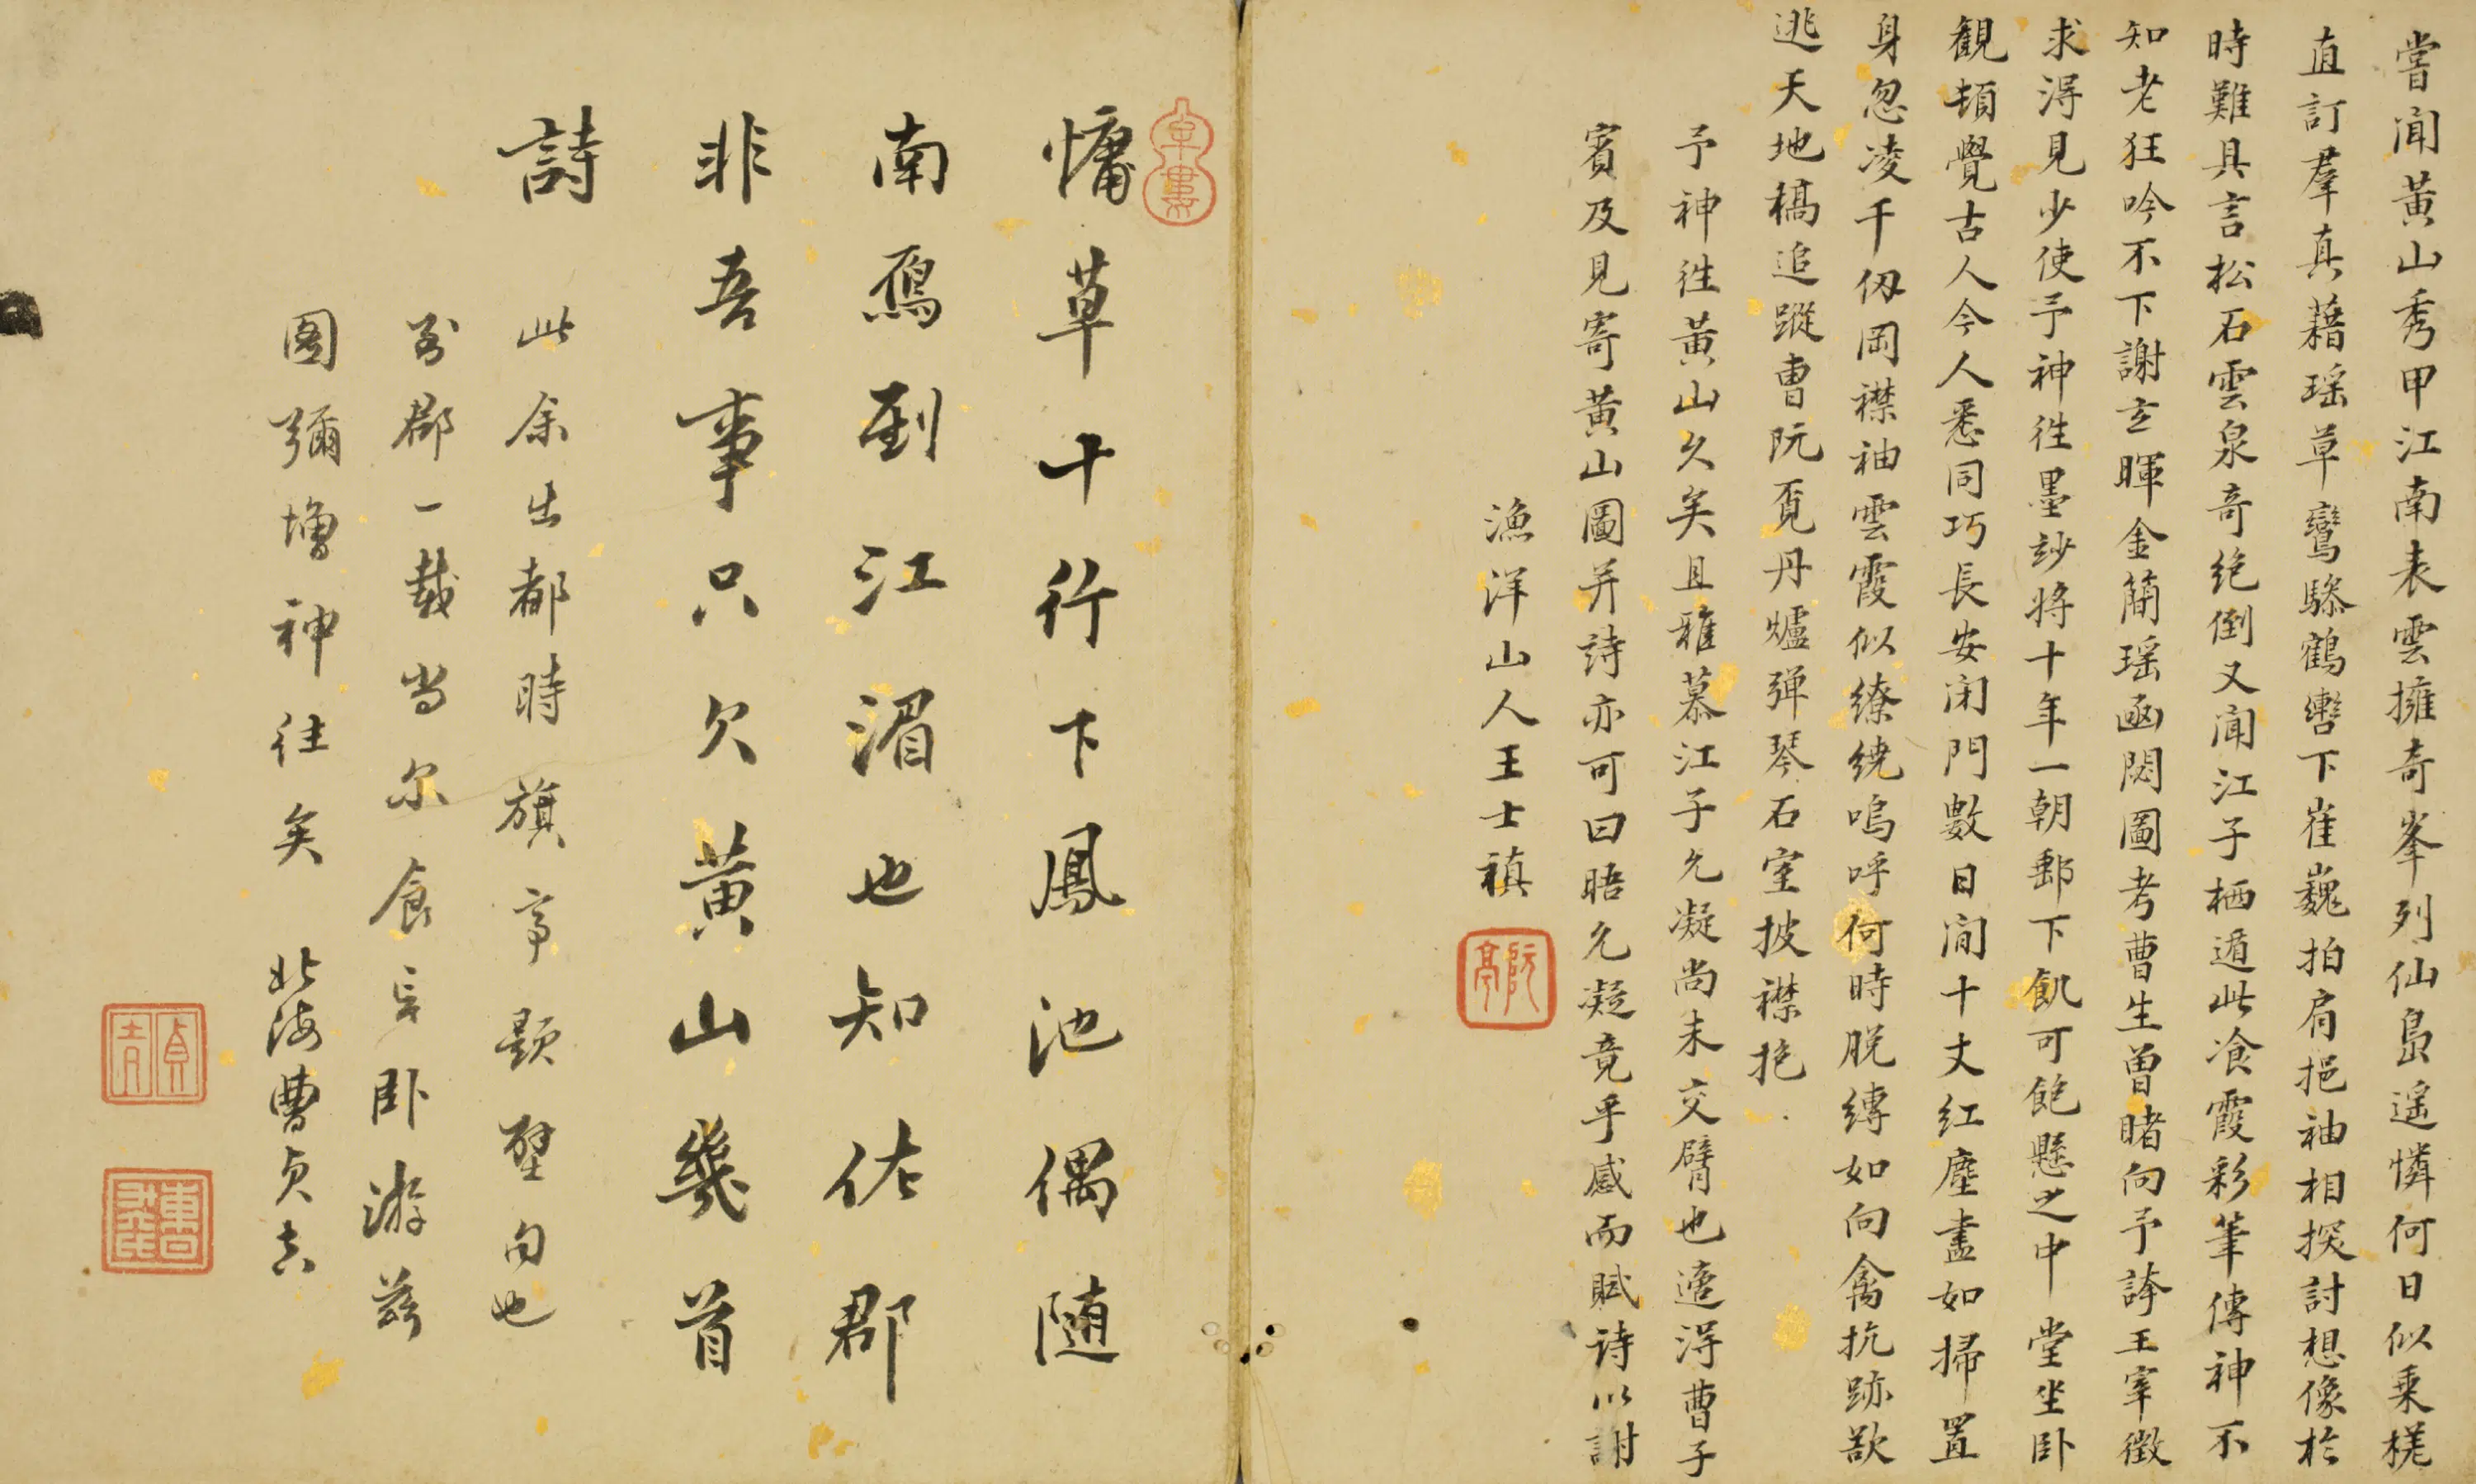 嘗聞黃山秀甲江南表雲擁奇峯列仙島遥憐何日似乗槎
直訂羣真藉瑶草鸞驂鶴轡下崔巍拍肩挹袖相探討想像於
時難具言松石雲泉奇絶倒又聞江子栖遁此飡霞彩筆傳神不
知老狂吟不下謝玄暉金蕑瑶函閟圖考曹生曽睹向予誇王宰徵
求淂見少使予神徃墨玅将十年一朝郵下飢可飽懸之中堂坐卧
観頓覺古人今人悉同巧長安閉門數日間十丈紅塵盡如掃置
身忽凌千仭岡襟袖雲霞似繚繞嗚呼何時脱縛如向禽抗跡欲
逃天地槁追蹤曹阮覓丹爐弹琴石室披襟抱
予神徃黃山久矣且雅慕江子允凝尚未交臂也適淂曹子
賓及見寄黃山圖并詩亦可曰晤允凝竟乎感而賦诗以謝
漁洋山人王士禛
阮亭
慵草十行下鳳池偶随
南鴈到江湄也知佐郡
非吾事只欠黄山幾首
詩
此余出都時旗亭題壁句也
郡一載当尔食言卧游兹
图彌增神往矣 北海曹贞吉
貞吉